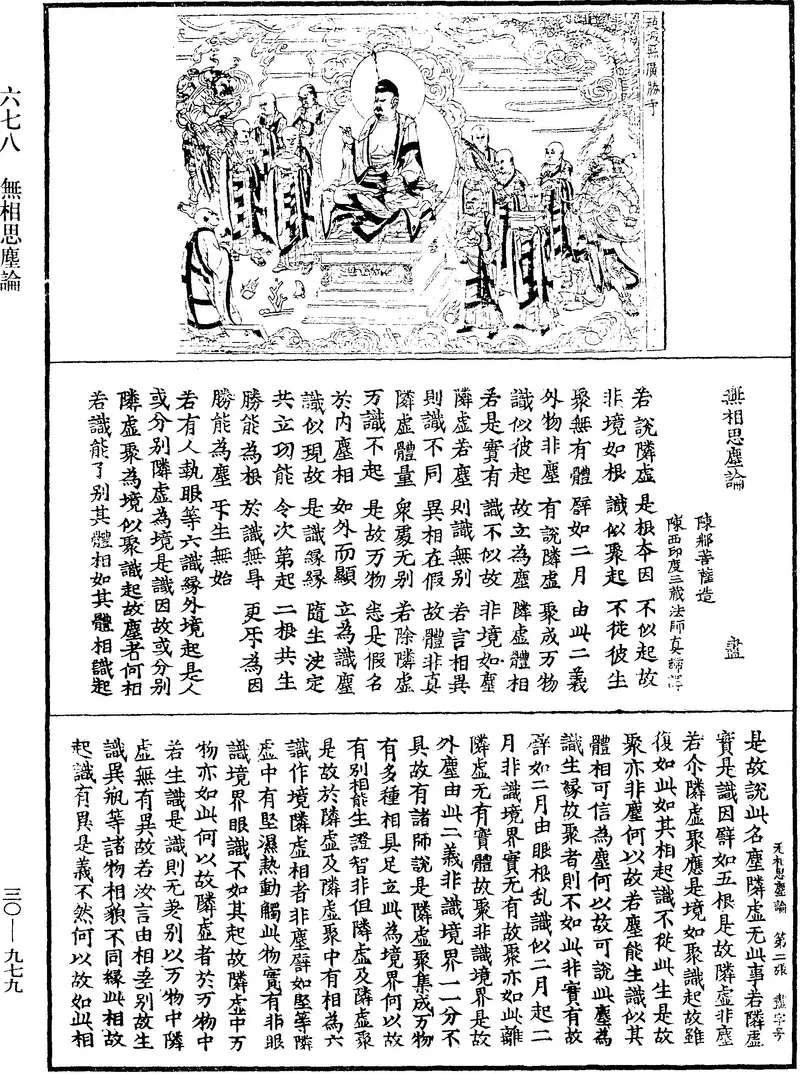 六七八　無相思塵論
三〇—九七九
趙城縣廣勝寺
無相思塵論　盡
陳那菩薩造
陳西印度三藏法師真諦譯
若說隣虛　是根本因　不似起故
非境如根　識似聚起　不從彼生
聚無有體　譬如二月　由此二義
外物非塵　有說隣虛　聚成万物
識似彼起　故立為塵　隣虛體相
若是實有　識不似故　非境如塵
隣虛若塵　則識無別　若言相異
則識不同　異相在假　故體非真
隣虛體量　衆處无別　若除隣虛
万識不起　是故万物　悉是假名
於內塵相　如外而顯　立為識塵
識似現故　是識緣緣　隨生決定
共立功能　令次第起　二根共生
勝能為根　於識無㝵　更㸦為因
勝能為塵　㸦生無始
若有人執眼等六識緣外境起是人
或分別隣虛為境是識因故或分別
隣虛聚為境似聚識起故塵者何相
若識能了別其體相如其體相識起
无相思塵論　第二張　盡字号
是故說此名塵隣虛无此事若隣虛
實是識因譬如五根是故隣虛非塵
若尒隣虛聚應是境如聚識起故雖
復如此如其相起識不從此生是故
聚亦非塵何以故若塵能生識似其
體相可信為塵何以故可說此塵為
識生緣故聚者則不如此非實有故
譬如二月由眼根乱識似二月起二
月非識境界實无有故聚亦如此離
隣虛无有實體故聚非識境界是故
外塵由此二義非識境界一一分不
具故有諸師說是隣虛聚集成万物
有多種相具足立此為境界何以故
有別相能生證智非但隣虛及隣虛聚
是故於隣虛及隣虛聚中有相為六
識作境隣虛相者非塵譬如堅等隣
虛中有堅濕熱動觸此物實有非眼
識境界眼識不如其起故隣虛中万
物亦如此何以故隣虛者於万物中
若生識是識則无差別以万物中隣
虛無有異故若汝言由相差別故生
識異瓶等諸物相貌不同緣此相故
起識有異是義不然何以故如此相